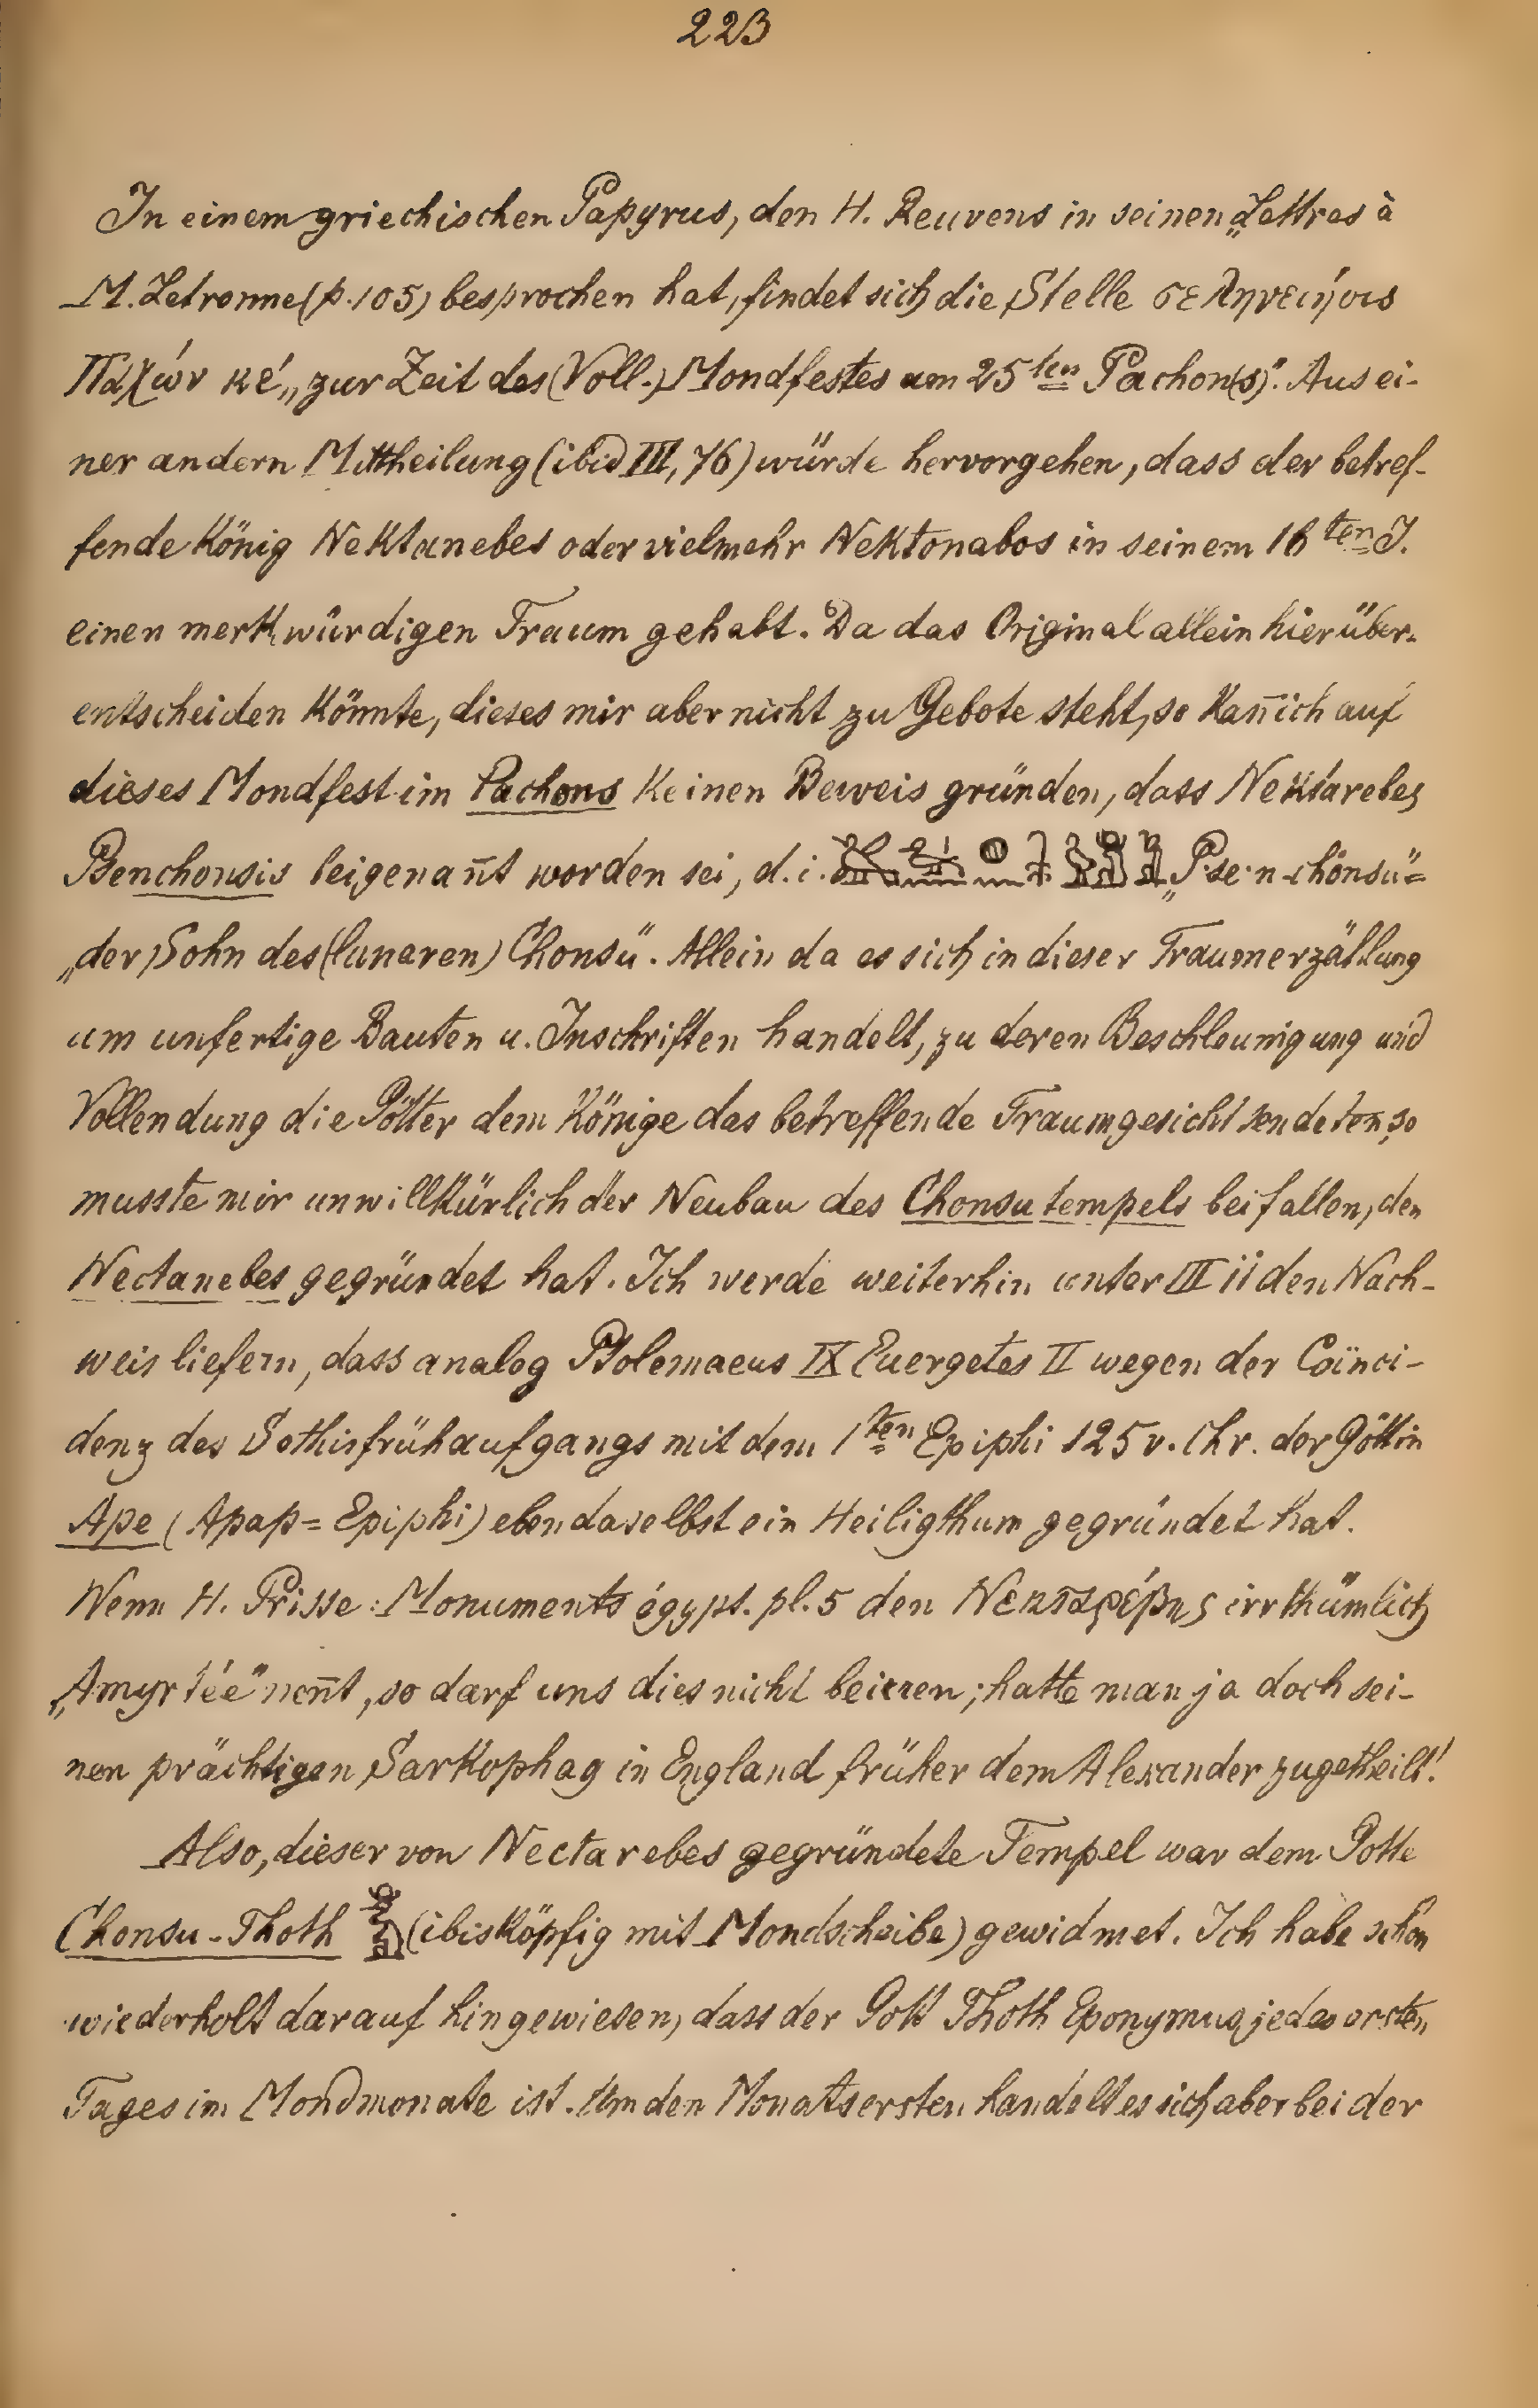 223
In einem griechischen Papyrus, den H. Reuvens in seinen „Lettres à
M. Letronne (p. 105) besprochen hat, findet sich die Stelle
Παχών κέ „zur Zeit des (Voll-) Mondfestes am 25ten Pachon(s)". Aus ei-
ner andern Mittheilung (ibid III, 76) würde hervorgehen, dass der betref-
fende König Nektanebes oder vielmehr Nektonabos in seinem 16ten J.
einen merkwürdigen Traum gehabt. Da das Original allein hierüber-
entscheiden könnte, dieses mir aber nicht zu Gebote steht, so kan̄ ich auf
dieses Mondfest im Pachons keinen Beweis gründen, dass Nektarebes
Psenchonsis beigenan̄t worden sei, d. i. „P-se-n-chönsu"=
„der Sohn des (lunaren) Chonsu". Allein da es sich in dieser Traumerzählung
um unfertige Bauten u. Inschriften handelt, zu deren Beschleunigung und
Vollendung die Götter dem Könige das betreffende Traumgesicht sendeten, so
musste mir unwillkürlich der Neubau des Chonsutempels beifallen, den
Nectanebes gegründet hat. Ich werde weiterhin unter III ii den Nach-
weis liefern, dass analog Ptolemaeus IX Euergetes II wegen der Coïnci-
denz des Sothisfrühaufgangs mit dem 1ten Epiphi 125 v. Chr. der Göttin
Ape (Apap = Epiphi) ebendaselbst ein Heiligthum gegründet hat.
Wenn H. Prisse: Monuments égypt. pl. 5 den Νεκταρέβης irrthümlich
„Amyrtée" nen̄t, so darf uns dies nicht beirren; hatte man ja doch sei-
nen prächtigen Sarkophag in England früher dem Alexander zugetheilt!
Also, dieser von Nectarebes gegründete Tempel war dem Gotte
Chonsu-Thoth (ibisköpfig mit Mondscheibe) gewidmet. Ich habe schon
wiederholt darauf hingewiesen, dass der Gott Thoth Eponymus jedes ersten
Tages im Mondmonate ist. Um den Monatsersten handelt es sich aber bei der